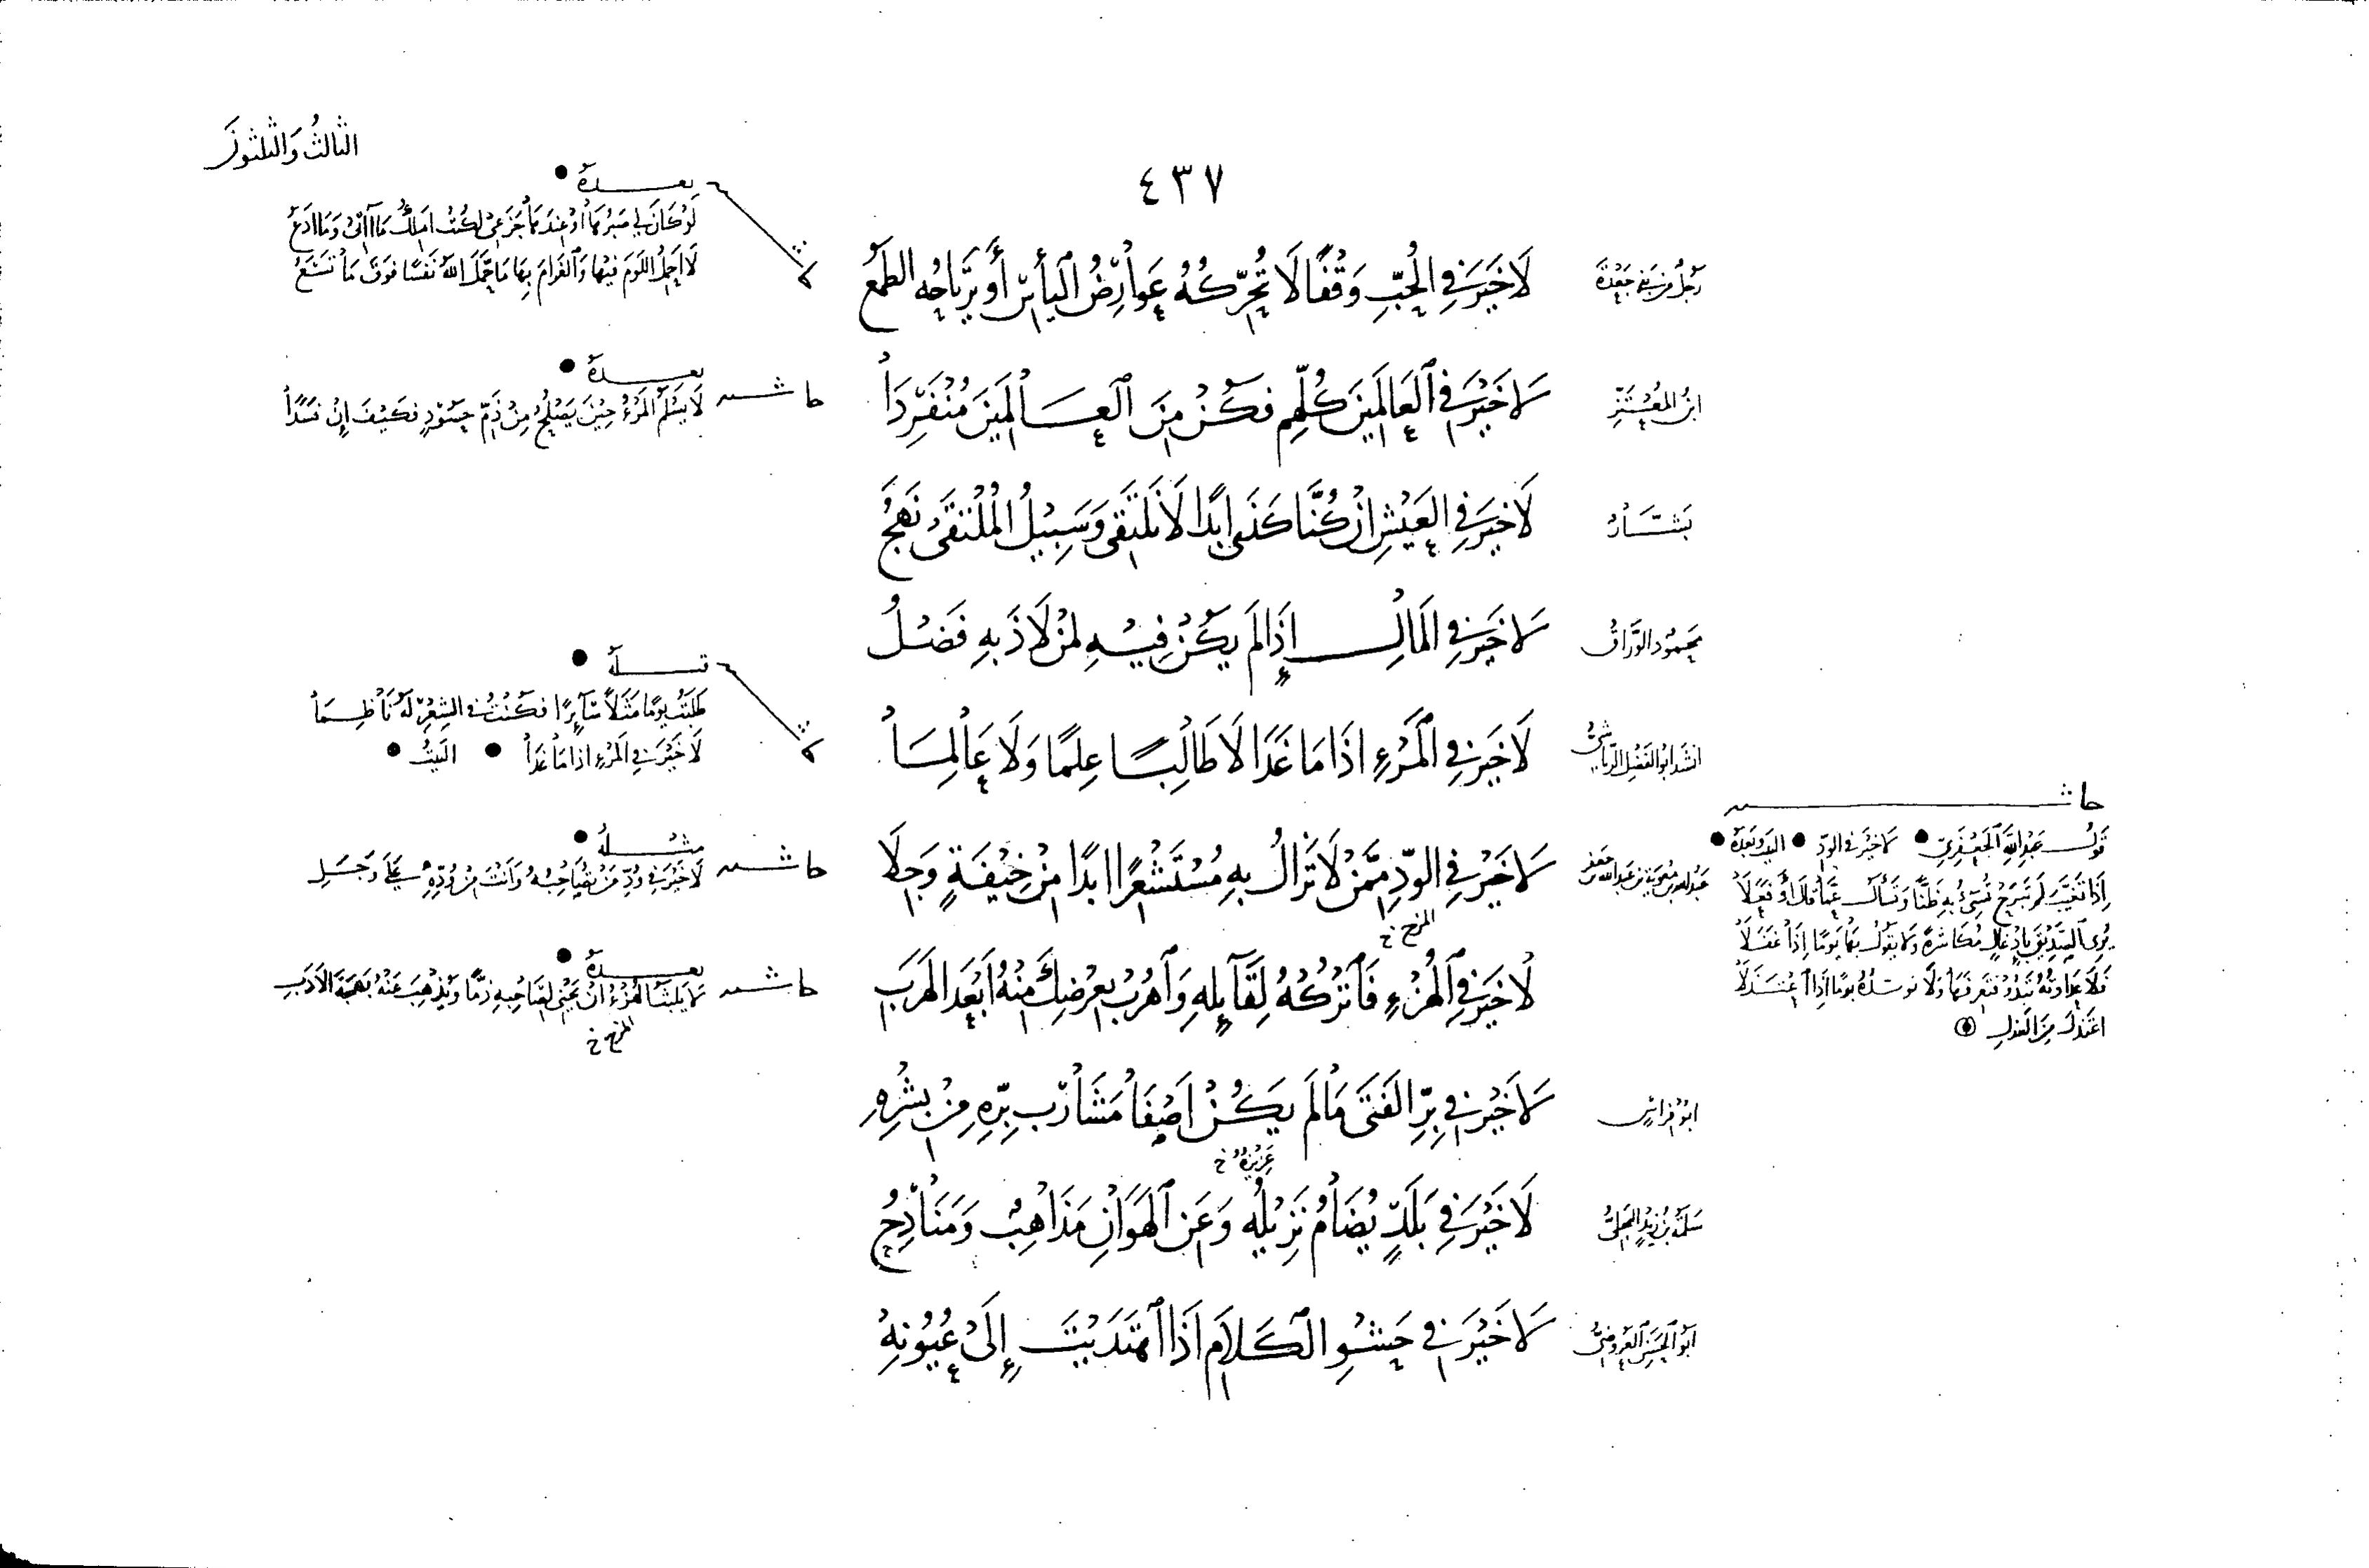 الثالثُ وَالثلثونَ
٤٣٧
رَجُلٌ مِن بَني جَعْدَةَ
لَا خَيَرَ فِي الْحُبِّ وَقْفًا لَا تُحَرِّكُهُ عَوَارِضُ الْيَأْسِ أَو يَرْتَاحُهُ الطَمَعُ
بعــدهُ
لَوْ كَانَ لِي صَبْرُهَا أوْ عِندَهَا جَزَعِي لَكُنْتُ امْلِكُ مَا آتِي وَمَا ادَعُ
لَا احْمِلُ اللَّوْمَ فِيْهَا وَالْغَرَامَ بِهَا مَا حَمَّلَ اللهُ نَفْسًا فَوْقَ مَا تَسَعُ
ابنُ المُعْتَزِّ
لَا خَيْرَ فِي الْعَالَمِيْنَ كُلِّهِمِ فَكُنْ مِنَ الْعَــالَمِيْنَ مُنْفَرِدَا
حاشــه
بعــدهُ
لَا يَسْلَمُ الْمَرْءُ حِيْنَ يَصْلُحُ مِنْ ذَمِّ حَسُوْدٍ فَكَيْفَ إِنْ فَسَدَا
بَشَّــارُ
لَا خَيْرَ فِي الْعَيْشِ انْ كُنَّا كَذَي ابَدًا لَا نَلْتَقِي وَسَبِيْلُ الْمُلْتَقَى نَهَجُ
مَحمُوْد الوَرَّاقُ
لَا خَيَرَ فِي الْمَالِ إِذَا لَمْ يَكُنْ فِيْهِ لِمَنْ لَاذَ بِهِ فَضْلُ
انشَدَ ابُو الفَضْلِ الرِّيَاشِيُّ
لَا خَيْرَ فِي الْمَرْءِ اذَا مَا غَدَا لَا طَالِبًــا عِلمًا وَلَا عَالِمَــا
قبــلهُ
طَلَبْتُ يَوْمًا مَثَلًا سَآئِرًا فَكُنْتُ فِي الشِعْرِ لَهُ نَاظِــمَا
لَا خَيْرَ فِي الْمَرْءِ اذَا مَا غَدَا البَيْتُ
عَبْدُ اللهِ بن مُعٰويَة بن عَبدِ الله بن جَعفر
لَا خَيْرَ فِي الوُدِّ مِمَّنْ لَا تَزَالُ بِهِ مُسْتَشْعِرًا ابَدًا مِنْ خِيْفَةٍ وَجَلَا
حاشــه
مثــلهُ
لَا خَيْرَ فِي وُدِّ مَنْ تُصَاحِبُهُ وَانْتَ مِنْ وُدِّهِ عَلَى وَجَــلِ
حاشــه
قَولُ عَبْدِ اللهِ الْجَعْفَرِيِّ لَا خَيْرَ فِي الوُدِّ البَيت وَبَعدَهُ
إِذَا تَغَيَّبَ لَمْ تَبْرَحْ تُسِيْءُ بِهِ ظَنًّا وَتَسْأَلُ عَمَّا قَالَ أَوْ فَعَلَا
اعْتَذَلَ مِنَ الْعَذلِ
لَا خَيَرَ فِي الْهُزْءِ فَاتْرُكْهُ لِقَآئِلِهِ وَاهْرُبْ بِعِرْضِكَ مِنْهُ أَبْعَدَ الْهَرَبِ
المزح خ
حاشــه
بعــدهُ
لَا يَلبَثُ الْهُزْءُ انْ يَجْنِي لِصَاحِبِهِ ذَمًّا وَيُذْهِبَ عَنْهُ بَهْجَةَ الْادَبِ
المزح خ
ابُوْ فِرَاسٍ
لَا خَيْرَ فِي بِرِّ الْفَتَى مَا لَمْ يَكُنْ اصْفَا مَشَارِبِ بِرِّهِ مِنْ بِشْرِهِ
سَلَمَةُ بنُ زَيْدٍ البَجَلِيُّ
لَا خَيْرَ فِي بَلَدٍ يُضَامُ نَزِيْلُهُ وَعَنِ الْهَوَانِ مَذَاهِبٌ وَمَنَادِحُ
عَزِيْزهُ خ
أبُو الْحَسَنِ الْعَرُوضِيُّ
لَا خَيْرَ فِي حَشْوِ الْكَلَامِ اذَا اهْتَدَيْتَ إِلَى عُيُونِهِ